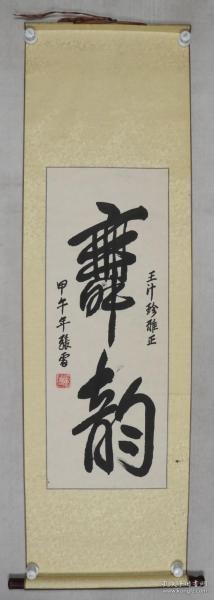 王汁珍雅正
舞韵
甲午年張雷